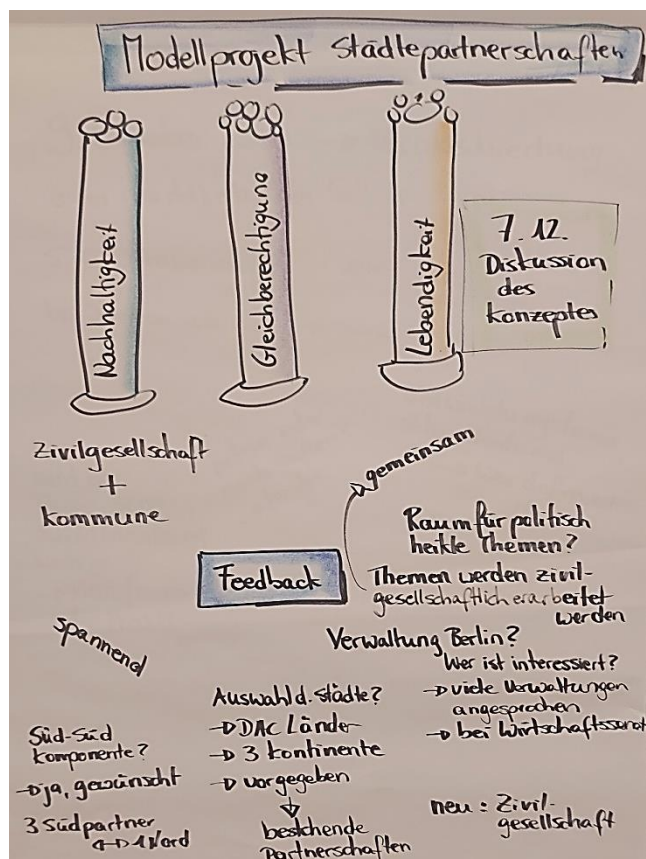 Modellprojekt Städtepartnerschaften
Nachhaltigkeit
Gleichberechtigung
Lebendigkeit
7.12.
Diskussion
des
Konzeptes
Zivilgesellschaft
+
Kommune
gemeinsam
Raum für politisch
heikle Themen?
Feedback
Themen werden zivil-
gesellschaftlich erarbeitet
werden
spannend
Verwaltung Berlin?
Wer ist interessiert?
→ viele Verwaltungen
angesprochen
→ bei Wirtschaftssenat
Auswahl d. Städte?
→ DAC Länder
→ 3 Kontinente
→ vorgegeben
↓
bestehende
Partnerschaften
Süd-Süd
Komponente?
→ ja, gewünscht
3 Südpartner
↔ 1 Nord
neu: Zivil-
gesellschaft